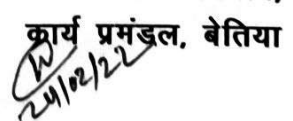 कार्य प्रमंडल, बेतिया
24/02/22